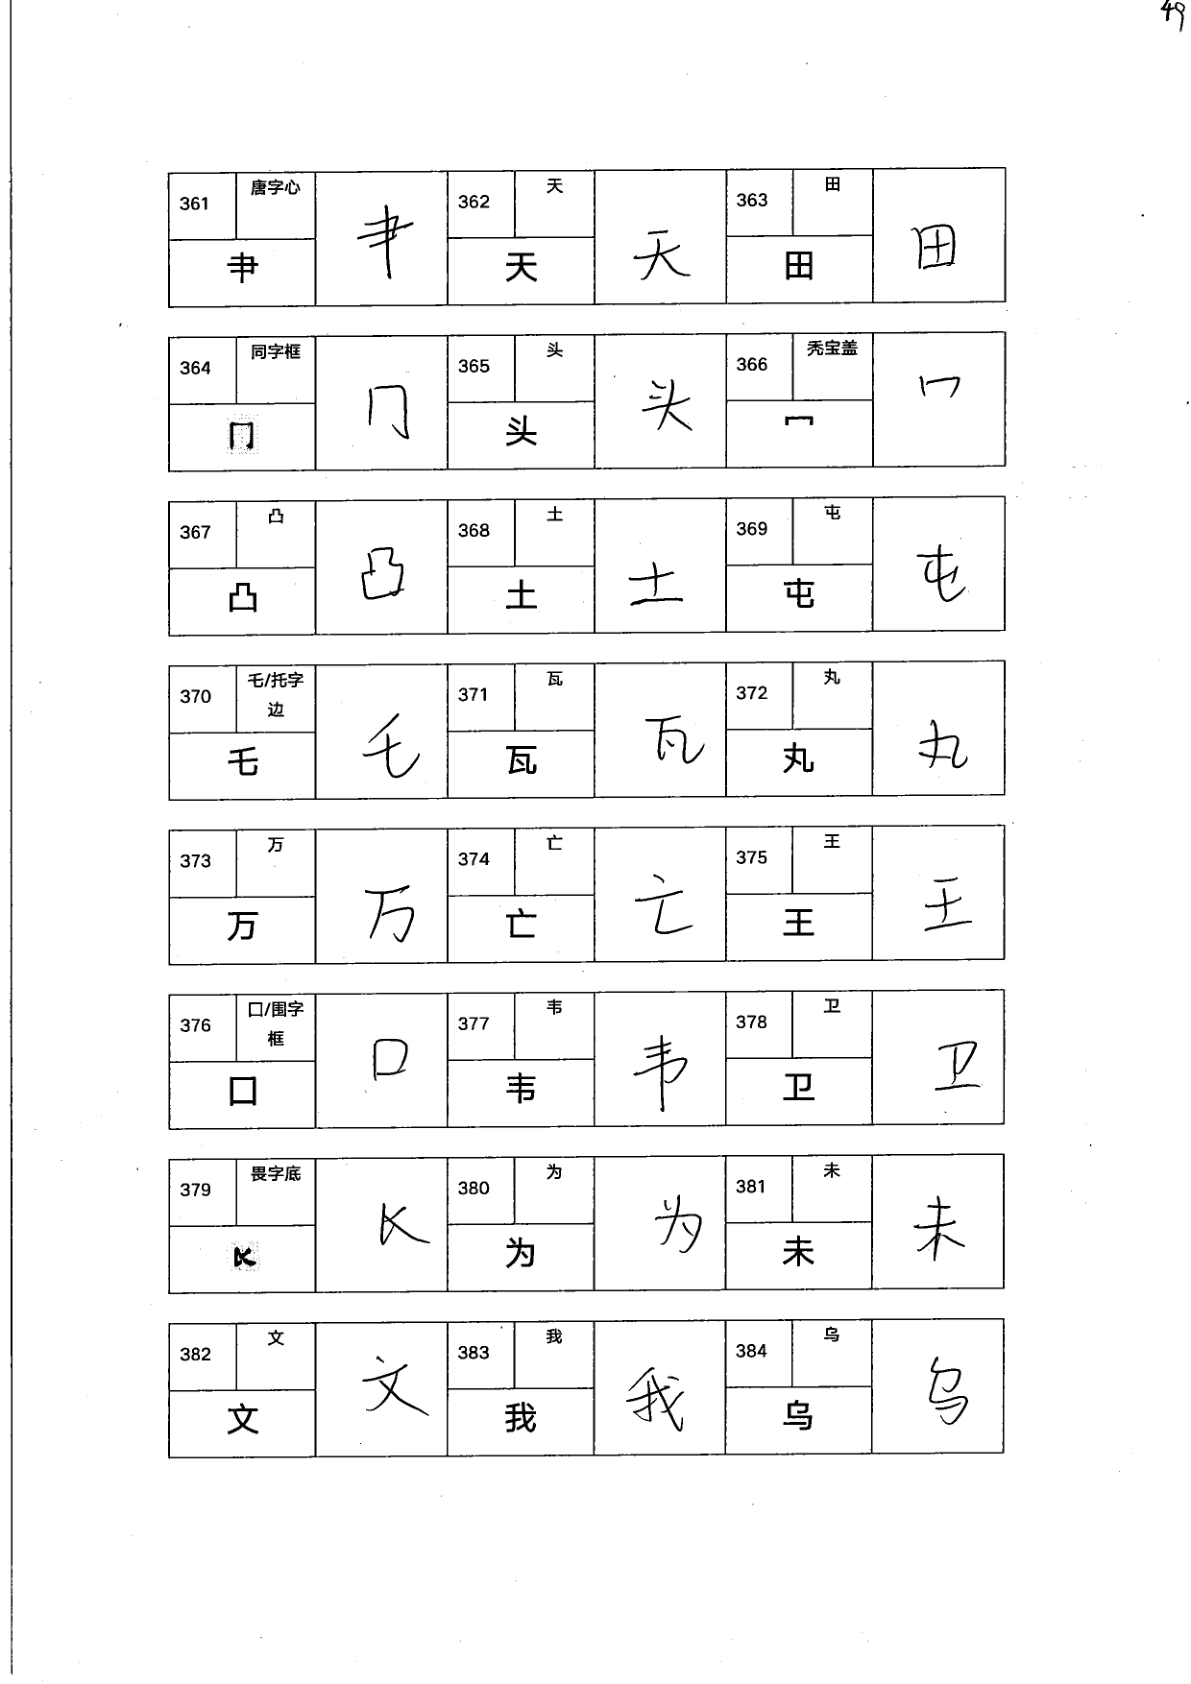 49
361 唐字心 肀 肀 362 天 天 天 363 田 田 田
364 同字框 冂 冂 365 头 头 头 366 秃宝盖 冖 冖
367 凸 凸 凸 368 土 土 土 369 屯 屯 屯
370 乇/托字边 乇 乇 371 瓦 瓦 瓦 372 丸 丸 丸
373 万 万 万 374 亡 亡 亡 375 王 王 王
376 囗/围字框 囗 囗 377 韦 韦 韦 378 卫 卫 卫
379 畏字底 380 为 为 为 381 未 未 未
382 文 文 文 383 我 我 我 384 乌 乌 乌